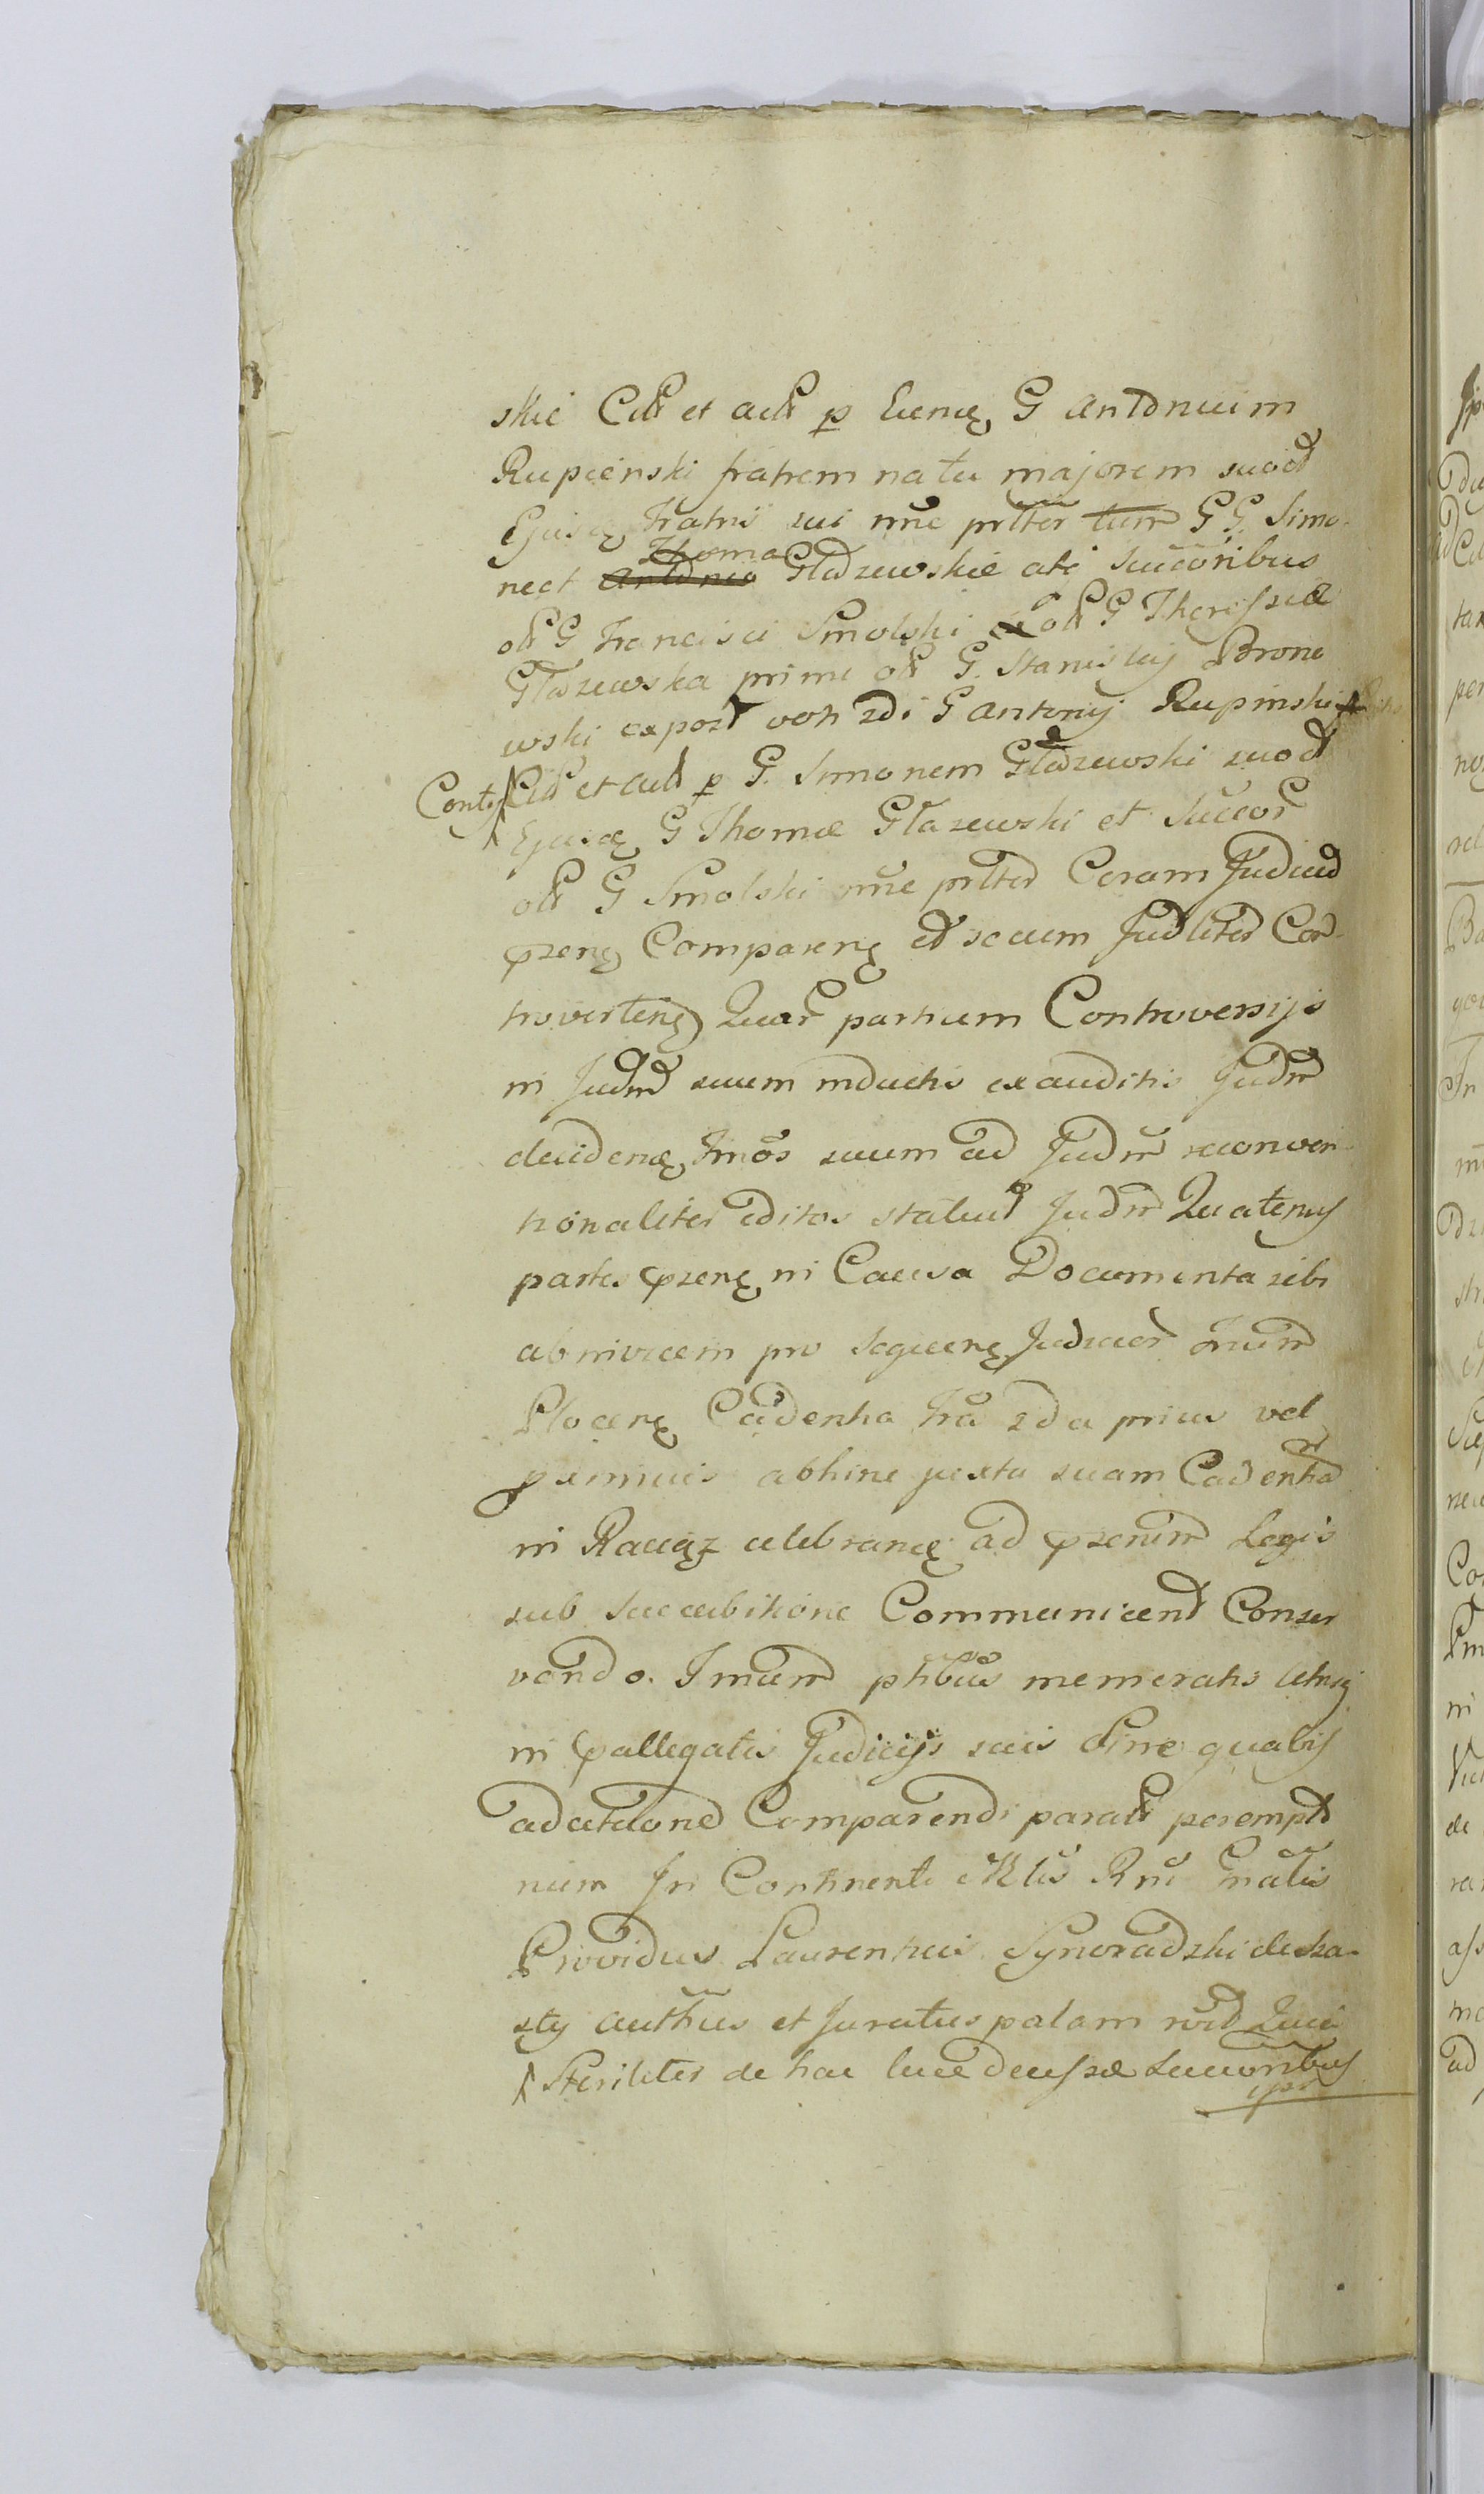 skie Citt et actt p Eundę G Antonium
Rupienski fratrem natu majorem suo et
Ejusdę Fratris sui nne prltēr tum G G Simo-
nect Antonio Thoma Głazewskie atq Succōribus
ott G Francisci Smolski ott G Theressiæ
Głazewska primi ott G. Stanislaj Brone
wski expost voti 2di G Antonij Rupinski
Contg Citt et actt p G. Simonem Głazewski suo et
Ejusdę G Thomæ Głazewski et Succor
ott G Smolski nne prlter Coram Judicio
prżenę Comparenę et secum Judliter Con-
trovertenę Quar partium Controversijs
in Judm suum inductis exauditis Judm
decidenę Tmōs suum ad Judm reconven-
tionaliter editos statuit Judm Quatenus
partes prżenę in Causa Documenta sibi
abinvicem pro sequenę Judicior Trium
Plocenę Cadentia Fra 2da prius vel
proximius abhinc juxta suam Cadentia
in Raciąz celebrandę ad prżentm Legis
sub Succubitione Communicent Conser
vando. Tmum ptibus memoratis utrisq
in praellegatis Judicijs suis Sine quavis
adcitatione Comparendi paratt perempt
rium In Continenti Mtis Rni Gnalis
Providus Laurentius Synoradzki de Sza-
sty authcus et Juratus palam rcd Quia
Steriliter de hac luce decessæ Succoribus
ipsi